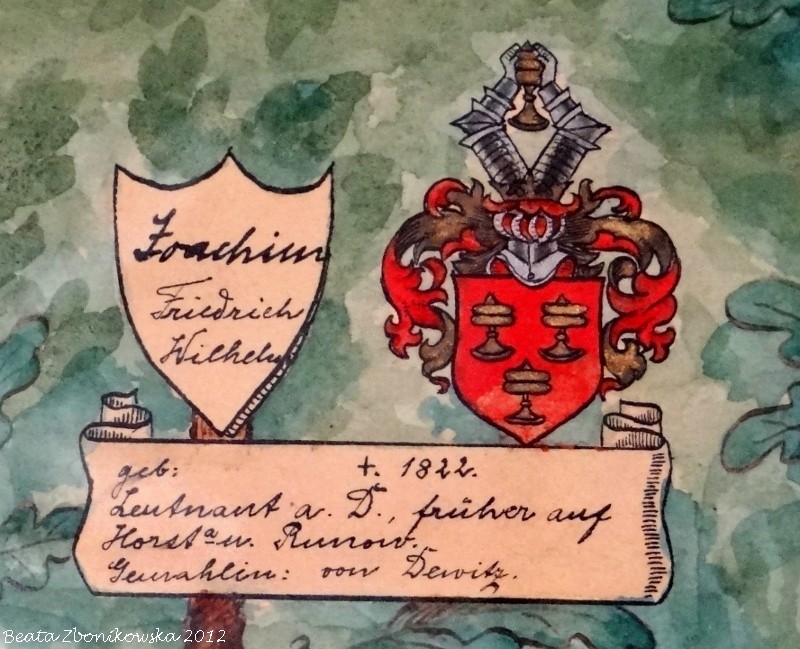 Joachim
Friedrich
Wilhelm
geb: †. 1822.
Leutnant a. D., früher auf
Horst a u. Runow.
Gemahlin: von Dewitz.
Beata Zbonikowska 2012